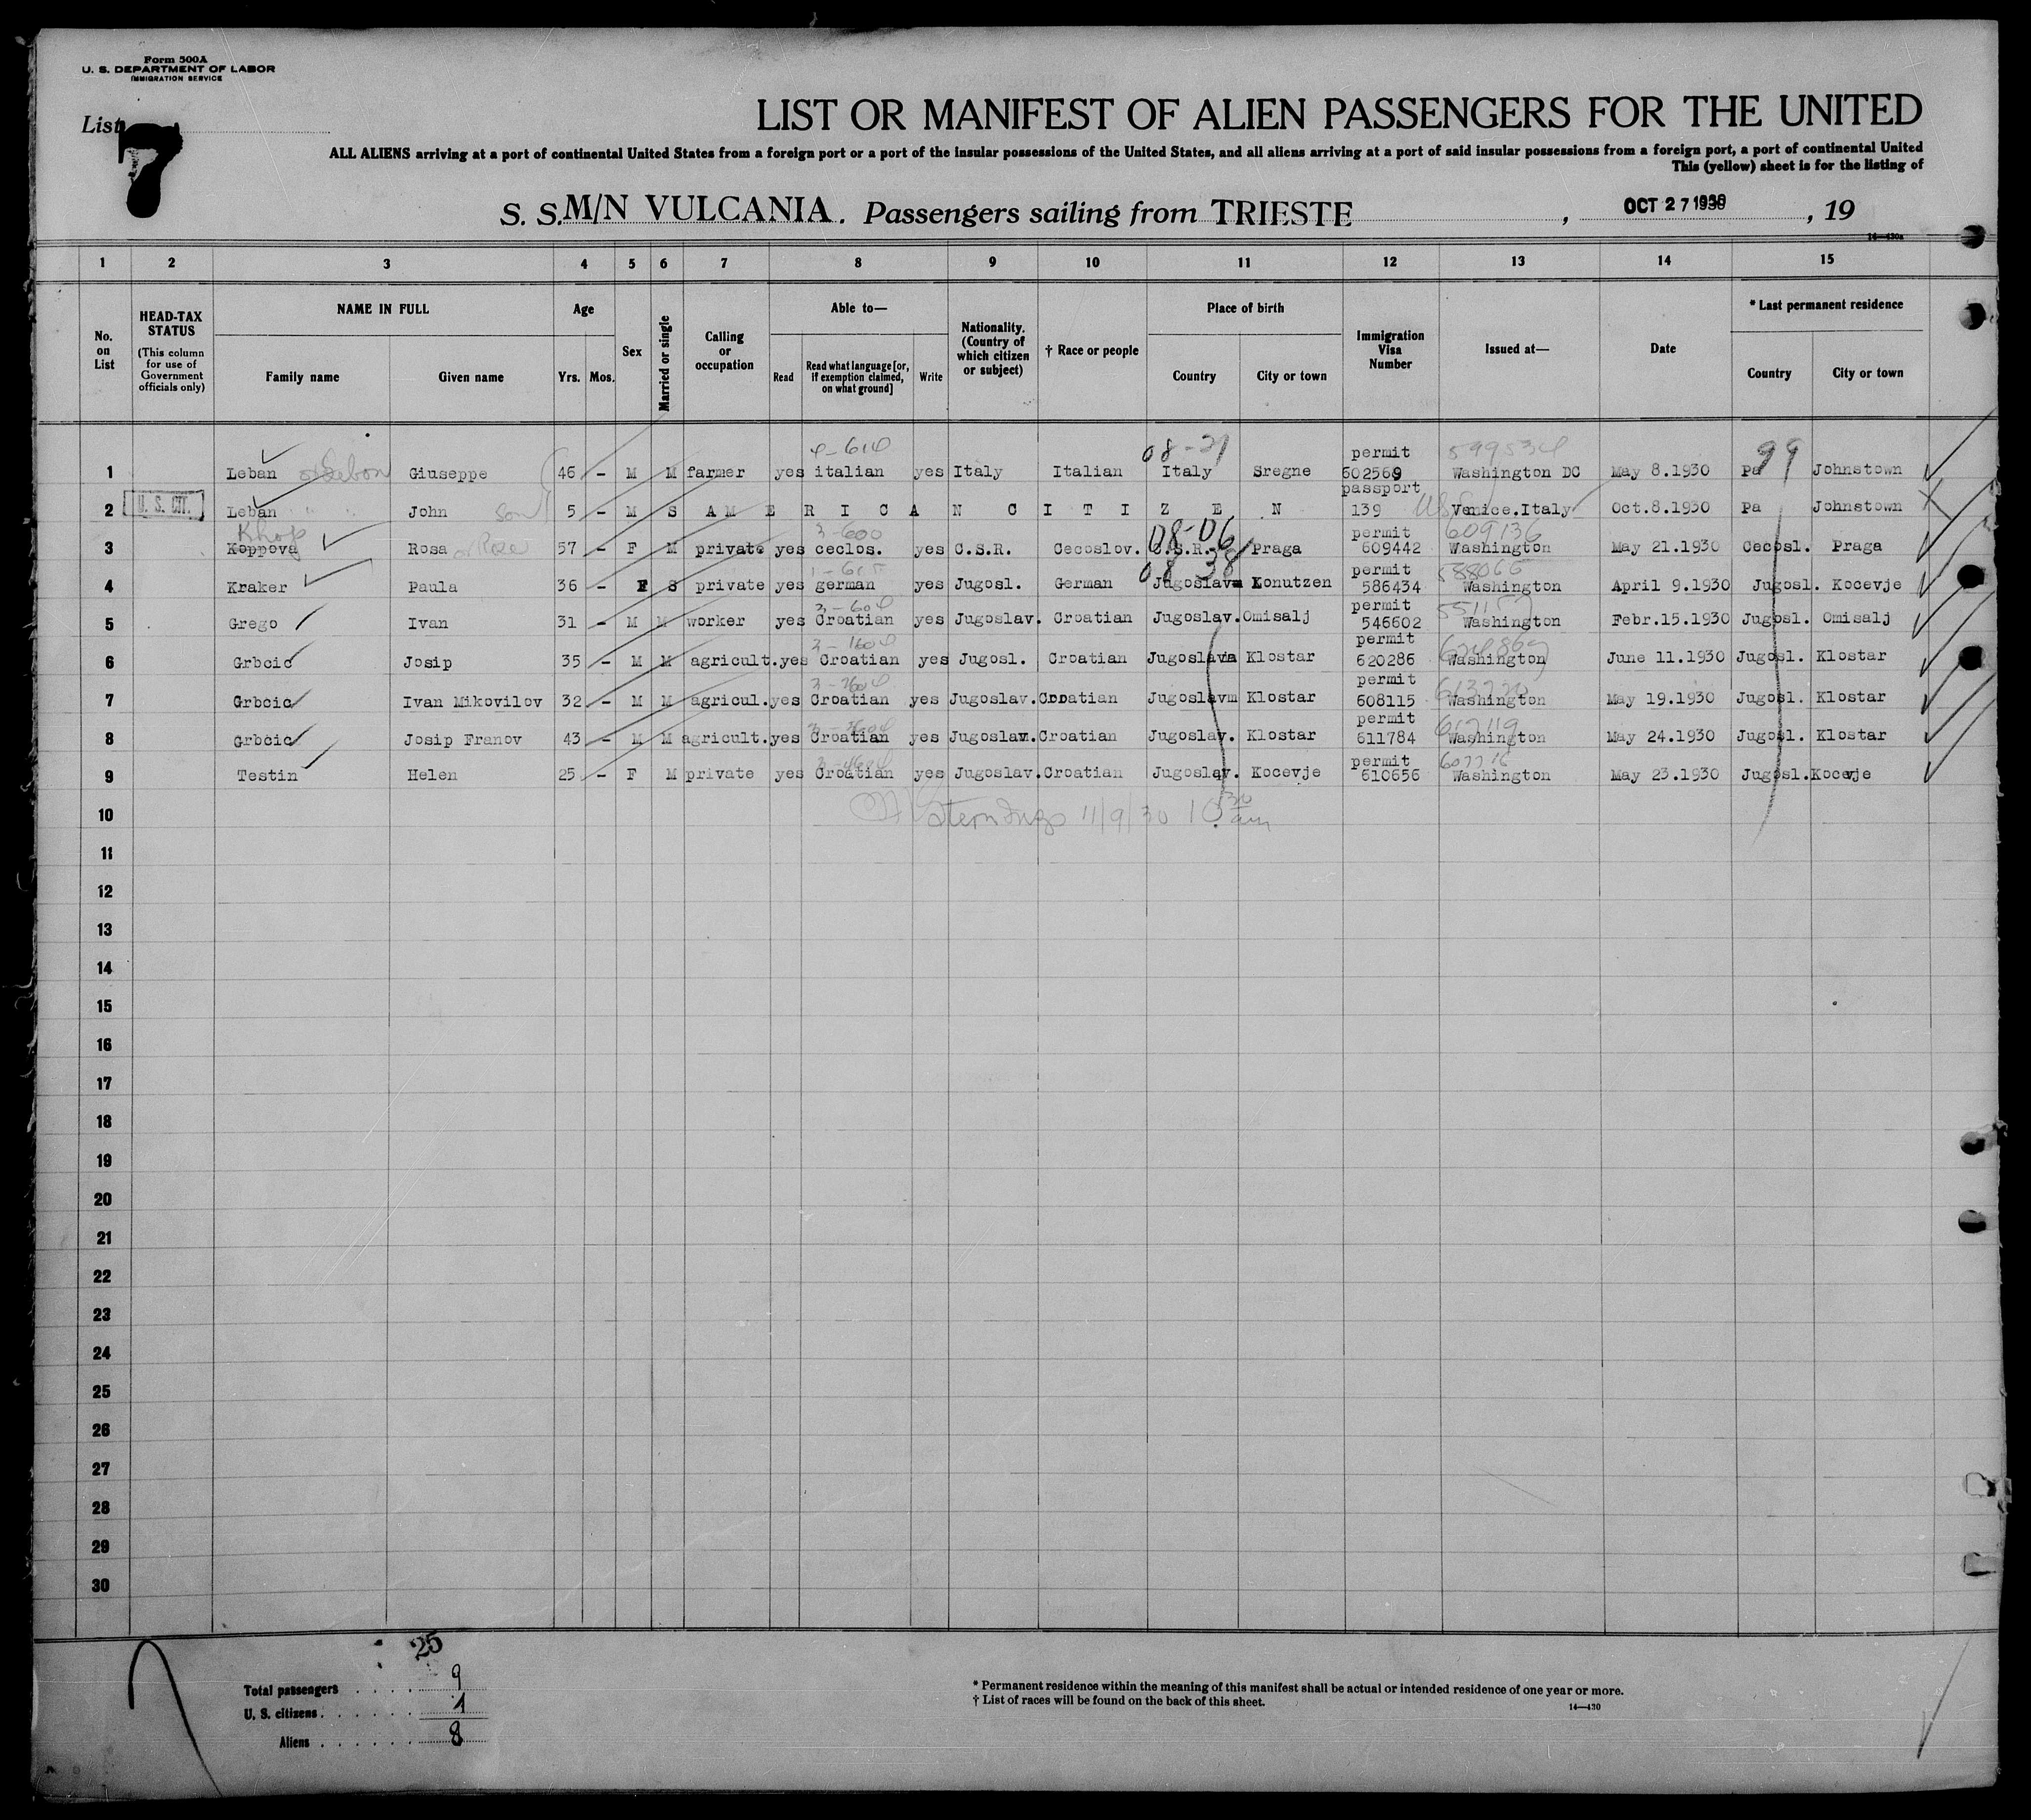 Form 500A
U. S. DEPARTMENT OF LABOR
IMMIGRATION SERVICE
List 7
LIST OR MANIFEST OF ALIEN PASSENGERS FOR THE UNITED
ALL ALIENS arriving at a port of continental United States from a foreign port or a port of the insular possessions of the United States, and all aliens arriving at a port of said insular possessions from a foreign port, a port of continental United
This (yellow) sheet is for the listing of
S. S. M/N VULCANIA. Passengers sailing from TRIESTE , OCT 27 1930 , 19
14—430a
1 2 3 4 5 6 7 8 9 10 11 12 13 14 15
No. on List
HEAD-TAX STATUS (This column for use of Government officials only)
NAME IN FULL Family name Given name
Age Yrs. Mos.
Sex
Married or single
Calling or occupation
Able to— Read Read what language [or, if exemption claimed, on what ground] Write
Nationality. (Country of which citizen or subject)
† Race or people
Place of birth Country City or town
Immigration Visa Number
Issued at—
Date
* Last permanent residence Country City or town
4-614 08-21 permit 599534 99
1 Leban or Lebon Giuseppe 46 – M M farmer yes italian yes Italy Italian Italy Sregne 602569 Washington DC May 8.1930 Pa Johnstown
passport
2 U. S. CIT. Leban " " John Son 5 – M S AMERICAN CITIZEN 139 Venice.Italy Oct.8.1930 Pa Johnstown
Khop 3-600 08-06 permit 609136
3 Koppova Rosa or Rose 57 – F M private yes ceclos. yes C.S.R. Cecoslov. C.S.R. Praga 609442 Washington May 21.1930 Cecosl. Praga
1-615 08 38 permit 588066
4 Kraker Paula 36 – F S private yes german yes Jugosl. German Jugoslav Konutzen 586434 Washington April 9.1930 Jugosl. Kocevje
3-604 permit
5 Grego Ivan 31 – M M worker yes Croatian yes Jugoslav. Croatian Jugoslav. Omisalj 546602 Washington Febr.15.1930 Jugosl. Omisalj
permit
6 Grbcic Josip 35 – M M agricult. yes Croatian yes Jugosl. Croatian Jugoslavia Klostar 620286 Washington June 11.1930 Jugosl. Klostar
permit
7 Grbcic Ivan Mikovilov 32 – M M agricul. yes Croatian yes Jugoslav. Croatian Jugoslav Klostar 608115 Washington May 19.1930 Jugosl. Klostar
permit 612119
8 Grbcic Josip Franov 43 – M M agricult. yes Croatian yes Jugoslav. Croatian Jugoslav. Klostar 611784 Washington May 24.1930 Jugosl. Klostar
permit
9 Testin Helen 25 – F M private yes Croatian yes Jugoslav. Croatian Jugoslav. Kocevje 610656 Washington May 23.1930 Jugosl. Kocevje
10 11/9/30 10 30 am
11
12
13
14
15
16
17
18
19
20
21
22
23
24
25
26
27
28
29
30
25
Total passengers . . . . 9
U. S. citizens . . . . . . 1
Aliens . . . . . . 8
* Permanent residence within the meaning of this manifest shall be actual or intended residence of one year or more.
† List of races will be found on the back of this sheet.
14—430